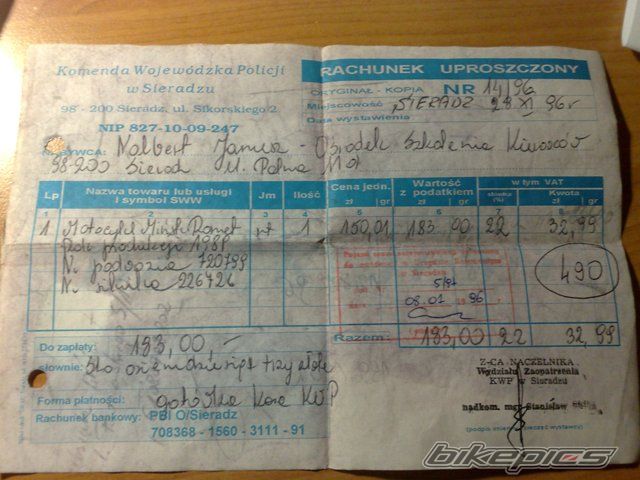 Komenda Wojewódzka Policji
w Sieradzu
98 - 200 Sieradz, ul. Sikorskiego 2
NIP 827-10-09-247
RACHUNEK UPROSZCZONY
ORYGINAŁ - KOPIA NR 14/96
Miejscowość SIERADZ 28 XI 96r
Data wystawienia
NABYWCA: Malbert Janusz - Ośrodek Szkolenia Kierowców
98-200 Sieradz ul. Polna
Lp Nazwa towaru lub usługi i symbol SWW Jm Ilość Cena jedn. zł gr Wartość z podatkiem zł gr w tym VAT stawka (%) Kwota zł gr
1 Motocykl Mińsk Romet 1 150,01 183 00 22 32,99
Rok produkcji
Nr podwozia 720799
Nr silnika 226726
490
w Sieradzu
5/97
08.01 1996
Razem: 183,00 22 32,99
Do zapłaty: 183,00 -
słownie: sto osiemdziesiąt trzy złote
Forma płatności: gotówka Kasa KWP
Rachunek bankowy: PBI O/Sieradz
708368 - 1560 - 3111 - 91
Z-CA NACZELNIKA
Wydziału Zaopatrzenia
KWP w Sieradzu
nadkom. mgr Stanisław
bikepics